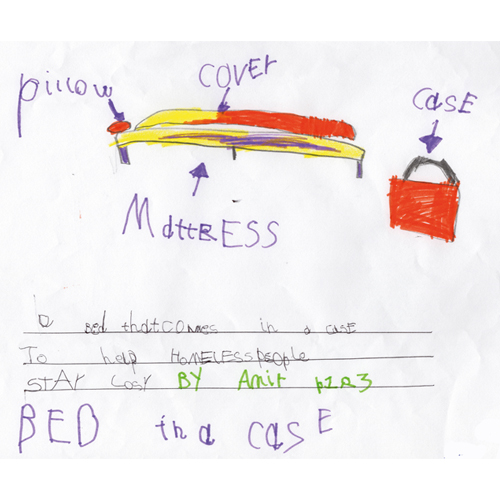 pillow
COVEr
CaSE
MattRESS
a BED thatCOMes in a caSE
To help HOMELESSpeople
StAr Cosy BY Amir p2R3
BED in a CaSE